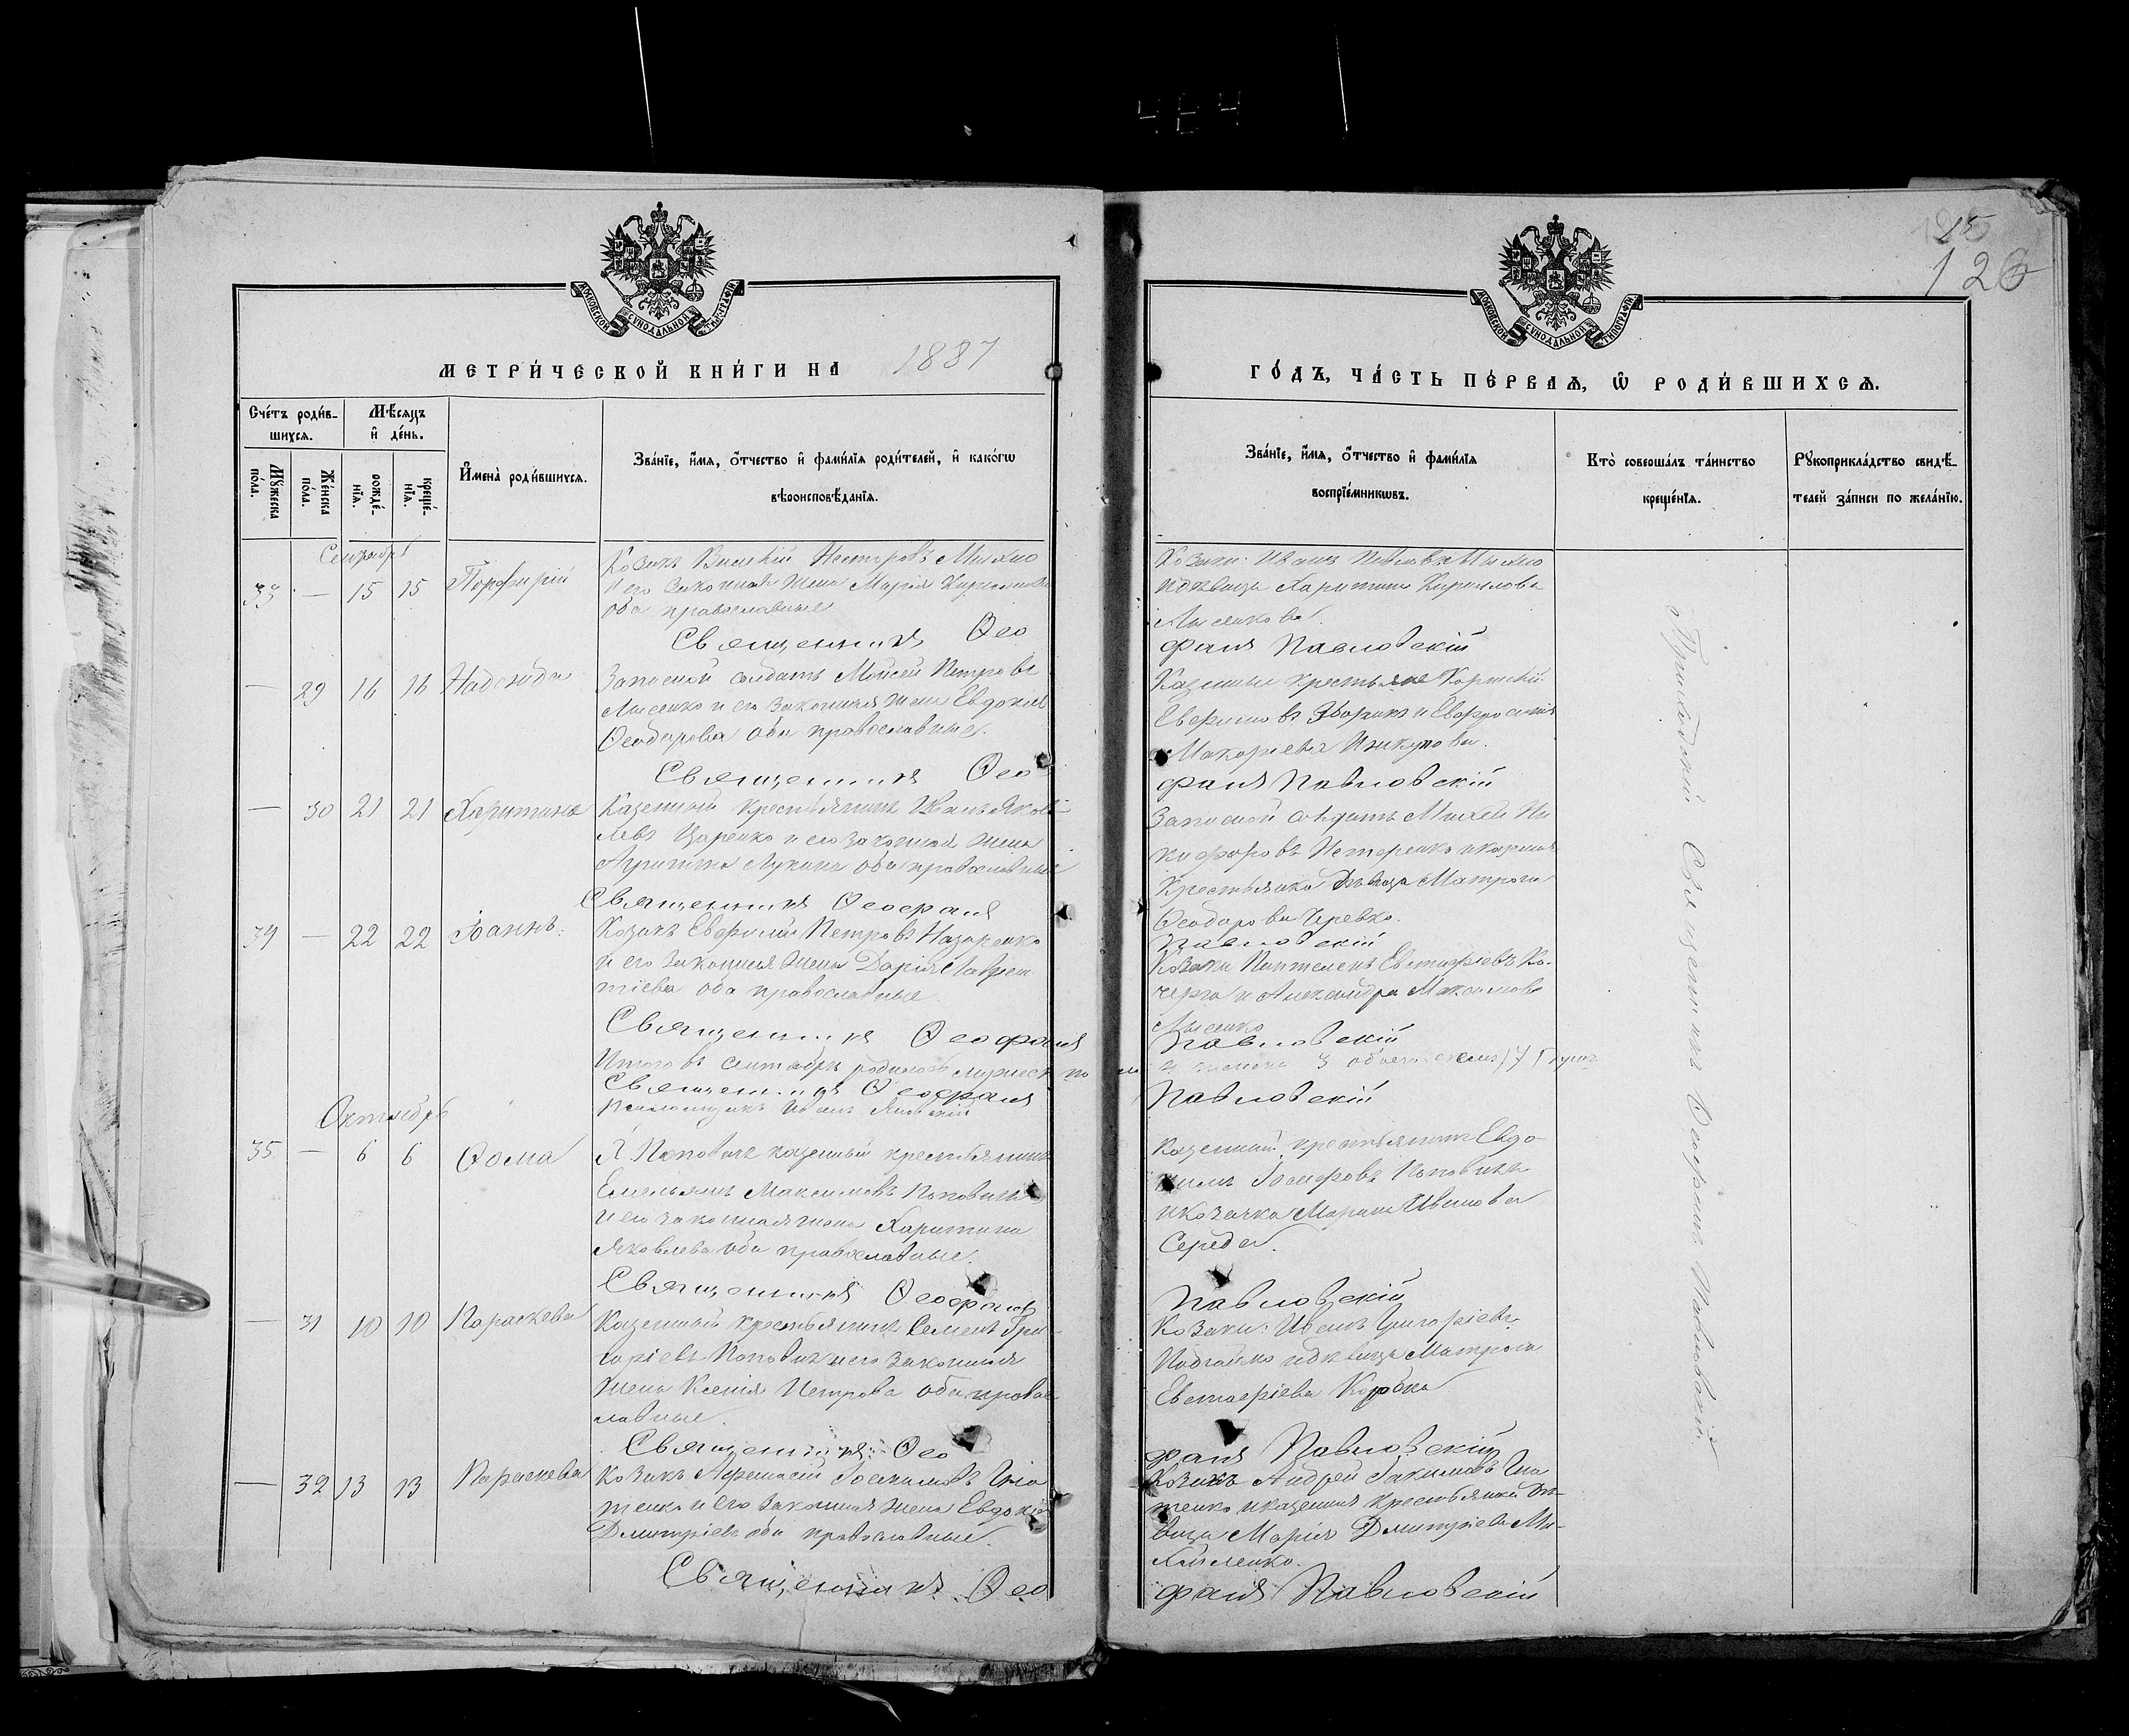 15
126
МОСКОВСКОЙ СѴНОДАЛЬНОЙ ТИПОГРАФІИ
МОСКОВСКОЙ СѴНОДАЛЬНОЙ ТИПОГРАФІИ
МЕТРИ́ЧЕСКОЙ КНИ́ГИ НА 1887
ГО́ДЪ, ЧА́СТЬ ПЕ́РВАѦ, Ѽ РОДИ́ВШИХСѦ.
Сче́тъ роди́в-
шихсѧ.
Мѣ́сѧцъ
и҆ де́нь.
Мꙋ́жеска
по́ла.
Же́нска
по́ла.
рожде́-
нїѧ.
креще́-
нїѧ.
И҆мена̀ роди́вшихсѧ.
Зва́нїе, и҆́мѧ, ѻ҆́тчество и҆ фами́лїѧ роди́телей, и҆ како́гѡ
вѣроисповѣ́данїѧ.
Зва́нїе, и҆́мѧ, ѻ҆́тчество и҆ фами́лїѧ
воспрїе́мникѡвъ.
Кто̀ соверша́лъ та́инство
креще́нїѧ.
Рꙋкоприкла́дство свидѣ́-
телей за́писи по жела́нїю.
Сентябрь
33 — 15 15 Порфирій
Козакъ Несторовъ
и его законная жена Марія Кирилова
оба православные
Козаки: Иванъ Павловъ
и дѣвица Харитина Кирилова
Лысенкова.
Священникъ Ѳео
фанъ Павловскій
— 29 16 16 Надежда
Запасной солдатъ Моисей Петровъ
Лысенко и его законная жена Евдокія
Ѳеодорова оба православные.
Казенные крестьяне
Евфимовъ и Евфросинія
Макаріева
Священникъ Ѳео
фанъ Павловскій
— 30 21 21 Харитина
Казенный крестьянинъ Иванъ Яков-
левъ Царенко и его законная жена
Лукина оба православные
Запасной солдатъ Михей Ни
кифоровъ Нетеренко и казенная
крестьянка дѣвица Матрона
Ѳеодорова Черевко.
Священникъ Ѳеофанъ
Павловскій
34 — 22 22 Іоаннъ.
Козакъ Евфимій Петровъ Назаренко
и его законная жена Дарія Лаврен
тіева оба православные.
Козаки Пантелеонъ Евстафіевъ Ко-
черга и Александра Максимова
Лысенко
Священникъ Ѳеофанъ
Павловскій
Итого въ сентябрѣ родилось мужеск пола
4 женска 3 обоего 7 душъ
Священникъ Ѳеофанъ
Павловскій
Псаломщикъ Иванъ
Октябрь
35 — 6 6 Ѳома
Поповичъ казенный крестьянинъ
Емельянъ Максимовъ Поповичъ
и его законная жена Харитина
Яковлева оба православные.
Казенный крестьянинъ Евдо-
кимъ Іосифовъ Поповичъ
и козачка Марина Иванова
Середа.
Священникъ Ѳеофанъ
Павловскій
— 31 10 10 Параскева
Казенный крестьянинъ Семенъ Гри-
горіевъ Поповичъ и его законная
жена Ксенія Петрова оба правос
лавные.
Козаки: Иванъ Григоріевъ
и дѣвица Матрона
Евстафіева
Священникъ Ѳео
фанъ Павловскій
— 32 13 13 Параскева
Козакъ Афанасій Гна
тенко и его законная жена Евдокія
Дмитріева оба православные.
Козакъ Андрей Іакимовъ Гна
тенко и казенная крестьянка дѣ-
вица Марія Дмитріева Ми-
хайленко.
Священникъ Ѳео
фанъ Павловскій
Приходскій Священникъ Ѳеофанъ Павловскій